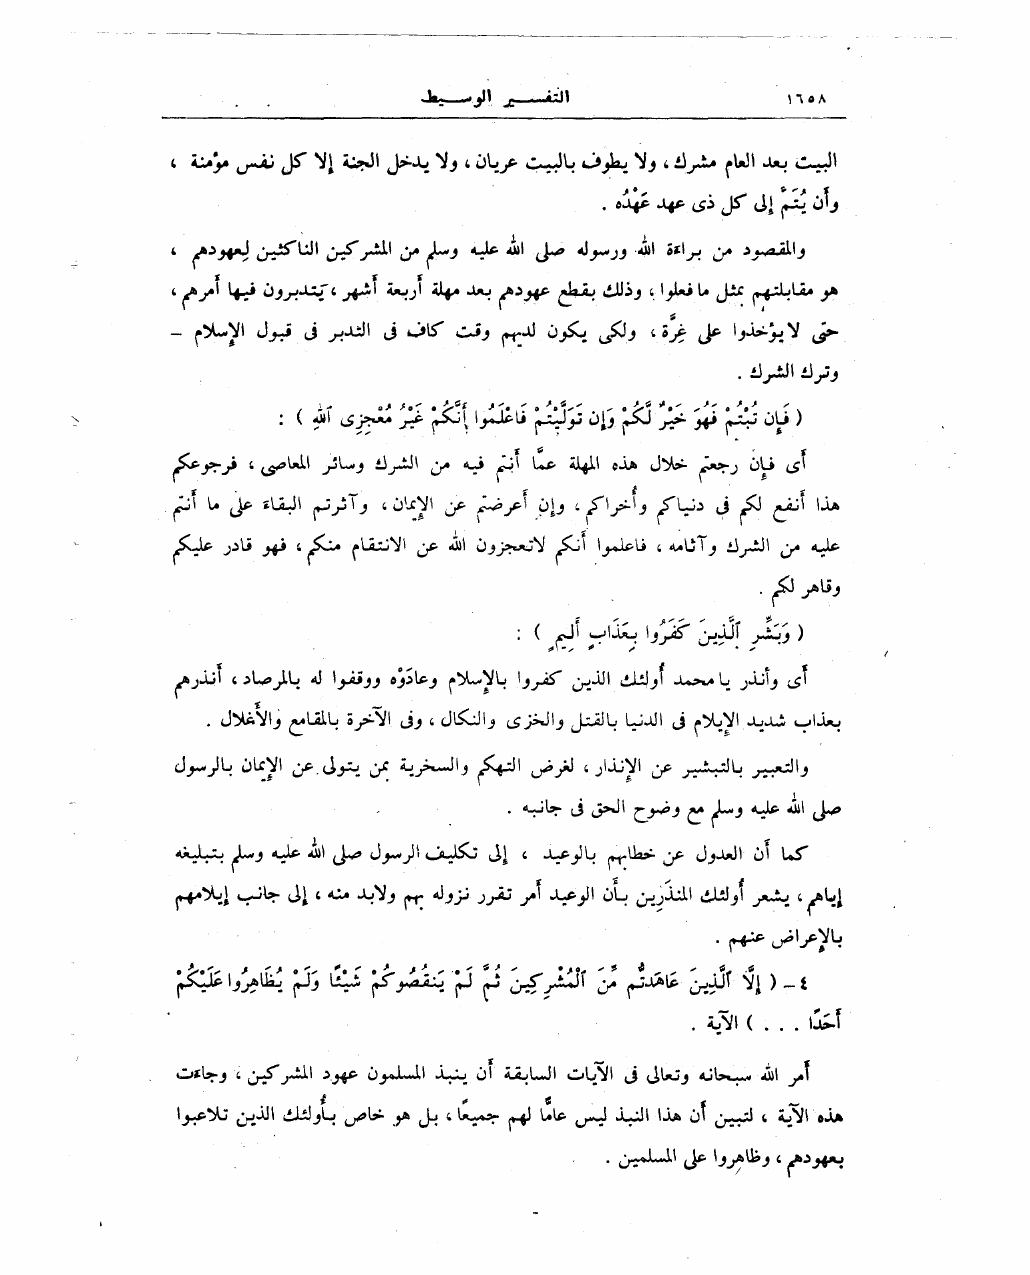 ١٦٥٨
التفسير الوسيط
البيت بعد العام مشرك، ولا يطوف بالبيت عريان، ولا يدخل الجنة إلا كل نفس مؤمنة ،
وأن يُتَمَّ إلى كل ذى عهد عَهْدُه .
والمقصود من براءة الله ورسوله صلى الله عليه وسلم من المشركين الناكثين لِعهودهم ،
هو مقابلتهم بمثل ما فعلوا ، وذلك بقطع عهودهم بعد مهلة أربعة أشهر ، يَتدبرون فيها أمرهم ،
حتى لا يؤخذوا على غِرَّة ، ولكى يكون لديهم وقت كاف فى التدبر فى قبول الإسلام –
وترك الشرك .
( فَإِن تُبْتُمْ فَهُوَ خَيْرٌ لَّكُمْ وَإِن تَوَلَّيْتُمْ فَاعْلَمُوا أَنَّكُمْ غَيْرُ مُعْجِزِى ٱللهِ ) :
أى فإن رجعتم خلال هذه المهلة عمَّا أنتم فيه من الشرك وسائر المعاصى ، فرجوعكم
هذا أنفع لكم فى دنياكم وأُخراكم ، وإن أعرضتم عن الإيمان ، وآثرتم البقاءَ على ما أنتم
عليه من الشرك وآثامه ، فاعلموا أنكم لاتعجزون الله عن الانتقام منكم ، فهو قادر عليكم
وقاهر لكم .
( وَبَشِّرِ ٱلَّذِينَ كَفَرُوا بِعَذَابٍ أَلِيمٍ ) :
أى وأنذر يا محمد أُولئك الذين كفروا بالإسلام وعادَوْه ووقفوا له بالمرصاد ، أنذرهم
بعذاب شديد الإيلام فى الدنيا بالقتل والخزى والنكال ، وفى الآخرة بالمقامع والأغلال .
والتعبير بالتبشير عن الإنذار ، لغرض التهكم والسخرية بمن يتولى عن الإيمان بالرسول
صلى الله عليه وسلم مع وضوح الحق فى جانبه .
كما أن العدول عن خطابهم بالوعيد ، إلى تكليف الرسول صلى الله عليه وسلم بتبليغه
إياهم ، يشعر أُولئك المنذَرِين بأن الوعيد أمر تقرر نزوله بهم ولابد منه ، إلى جانب إيلامهم
بالإعراض عنهم .
٤ – ( إِلَّا ٱلَّذِينَ عَاهَدتُّم مِّنَ ٱلْمُشْرِكِينَ ثُمَّ لَمْ يَنقُصُوكُمْ شَيْئًا وَلَمْ يُظَاهِرُوا عَلَيْكُمْ
أَحَدًا . . . ) الآية .
أمر الله سبحانه وتعالى فى الآيات السابقة أن ينبذ المسلمون عهود المشركين ، وجاءت
هذه الآية ، لتبين أن هذا النبذ ليس عامًّا لهم جميعًا ، بل هو خاص بأُولئك الذين تلاعبوا
بعهودهم ، وظاهروا على المسلمين .